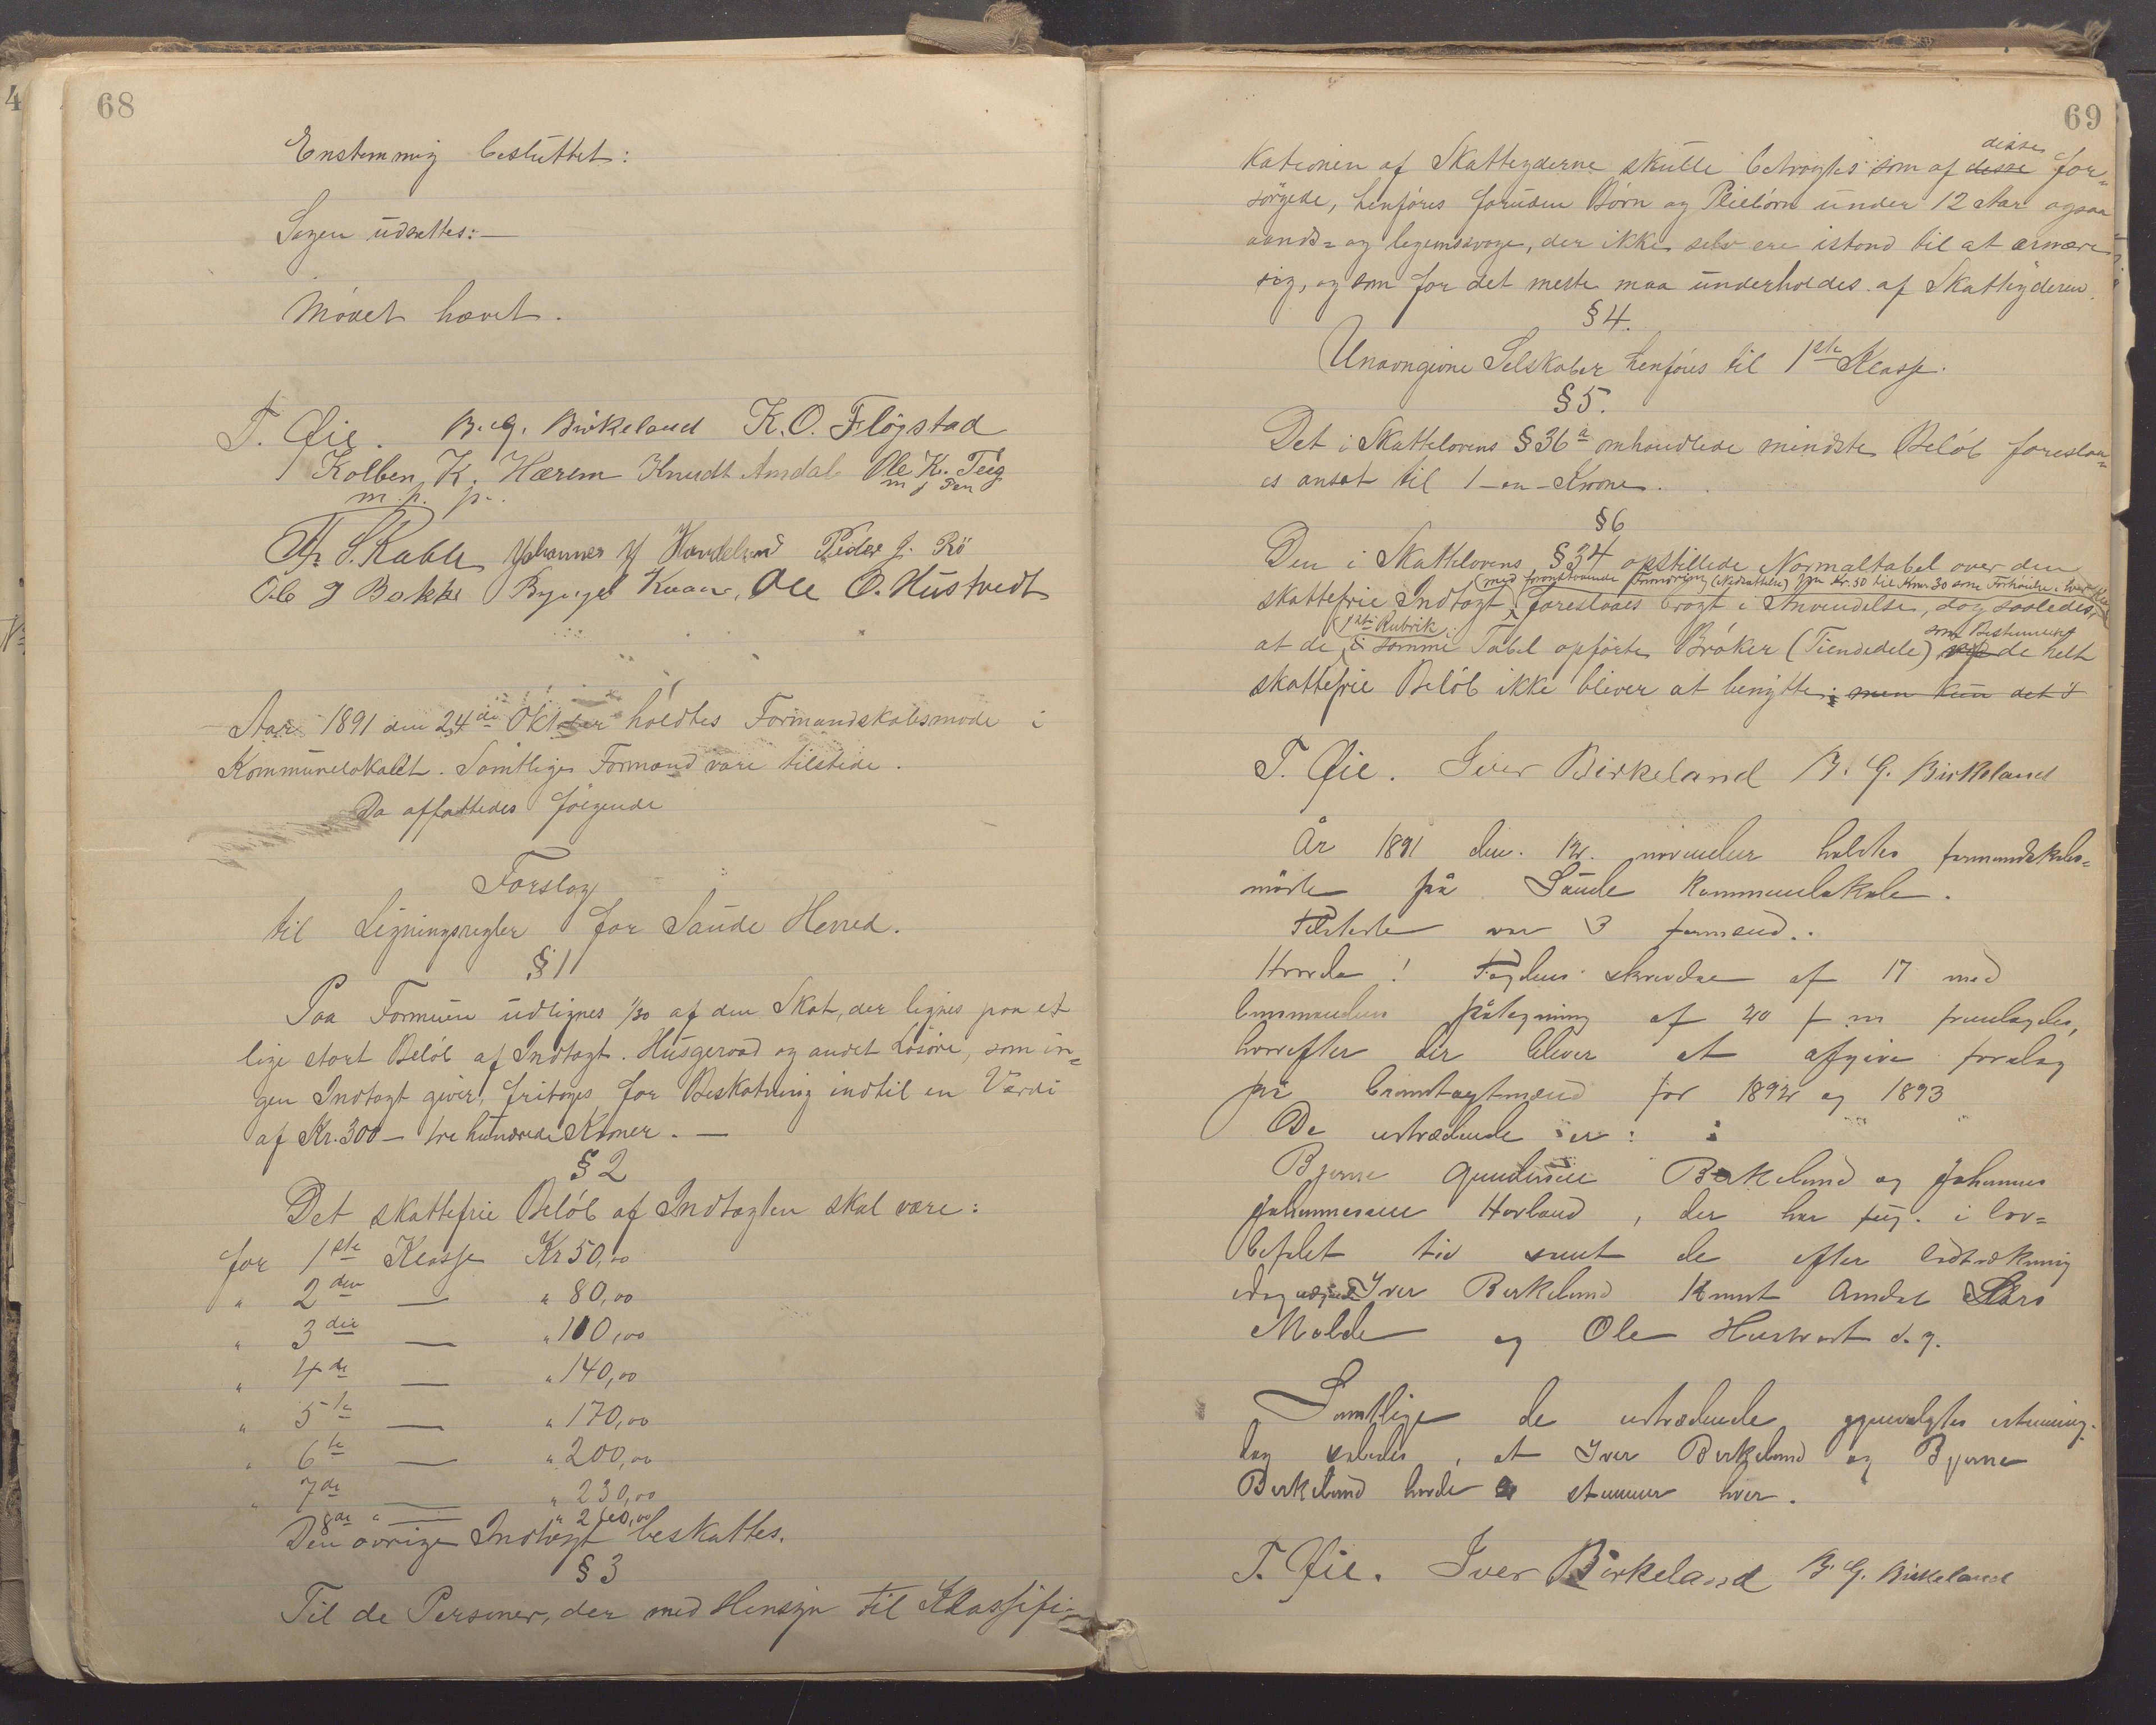 68
Enstemmig besluttet:
Sagen udsattes:—
Mödet hævet.
T. Öie. B. G. Birkeland K. O. Flögstad
Kolben K. Hærem Knudt Amdal Ole K. Teig
m. p. p. m p Pen
S. Rabbe Johannes Peder J. Rö
Ole J Bakke Kvam, Ole O. Hustvedt
Aar 1891 den 24de Oktober holdtes Formandskabsmøde i
Kommunelokalet. Samtlige Formænd vare tilstede.
Da affattedes følgende
Forslag
til Ligningsregler for Saude Herred.
§ 1
Paa Formuen udlignes 1/30 af den Skat, der lignes paa et
lige stort Beløb af Indtægt. Husgeraad og andet Løsøre, som in=
gen Indtægt giver, fritages for Beskatning indtil en Værdi
af Kr. 300 — tre hundrede Kroner. —
§ 2
Det skattefrie Beløb af Indtægten skal være:
for 1ste Klasse Kr 50,00
" 2den — " 80,00
" 3die — " 110,00
" 4de — " 140,00
" 5te — " 170,00
" 6te — " 200,00
" 7de — " 230,00
" 8de " — " 260,00
Den øvrige Indtægt beskattes.
§ 3
Til de Personer, der med Hensyn til Klassifi-
69
kationen af Skatteyderne skulle betragtes som af desse disse for=
sørgede, henføres foruden Børn og Pleiebørn under 12 Aar ogsaa
aands= og legemssvage, der ikke selv ere istand til at ernære
sig, og som for det meste maa underholdes af Skatteyderen.
§ 4.
Unavngivne Selskaber henføres til 1ste Klasse.
§ 5.
Det i Skattelovens § 36 a omhandlede mindste Beløb foreslaa=
es ansat til 1 — en — Krone.
§ 6
Den i Skattelovens § 34 opstillede Normaltabel over den
(med forandring (Nedsættelse) fra Kr. 50 til Kr. 30 som Forhøielse i hver
skattefrie Indtægt foreslaaes bragt i Anvendelse, dog saaledes,
1ste Rubrik som Bestemmelse
at de i samme Tabel opførte Brøker (Tiendedele) de helt
skattefrie Beløb ikke bliver at benytte; men kun det i
T. Öie. Iver Birkeland B. G. Birkeland
År 1891 den 12. november holdtes formandskabs=
møde på Saude kommunelokale.
Tilstede var 3 formænd.
Hvorda! Fogdens skrivelse af 17 med
påtegning af 20 f. m. fremlagdes,
hvorefter der bliver at afgive forslag
på brandtagtmænd for 1892 og 1893
De udtrædende er:
Bjerne Gundersen Birkeland og Johannes
Johannessen Hovland, der har i lov=
befalet tid samt de efter lodtrækning
idag Iver Birkeland Knut Amdal Lars
Molde og Ole Hustvedt d. y.
Samtlige de udtrædende gjenvalgtes enstemmig.
dog saaledes, at Iver Birkeland og Bjerne
Birkeland havde 2 stemmer hver.
T. Öie. Iver Birkeland B. G. Birkeland